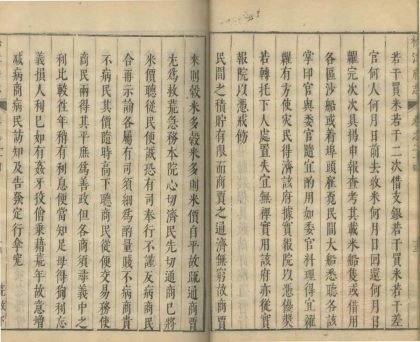 若干買米若干二次借支銀若干買米若干差
官何人何月日前去收米何月日回還何月日
糴完次次具揭申報查考其載米船隻或借用
各區沙船或着埠頭雇覓民間大船悉聽各該
掌印官與委官隨宜酌用如委官料理得宜
糴有方使災民得濟該府據實報院以憑優獎
若轉托下人處置失宜無裨實用該府亦從實
報院以憑戒飭
民間之積貯有限而商賈之通濟無窮故商賈
來則穀米多穀米多則米價自平故疏通商賈
尤為救荒急務本院心切濟民先切通商已將
米價聽從民便誠恐有司奉行不謹反病商民
合再示諭各屬有司須細為酌量毋不病商賈
不病民其價隨時高下聽商民從便交易務使
商民兩得其平庶為善政但各商須秉義中之
利比較往年稍有利息便當知足毋得徇利忘
義損人利己如有姦牙狡儈乘藉荒年故意增
減病商病民訪知及告發定行拿究